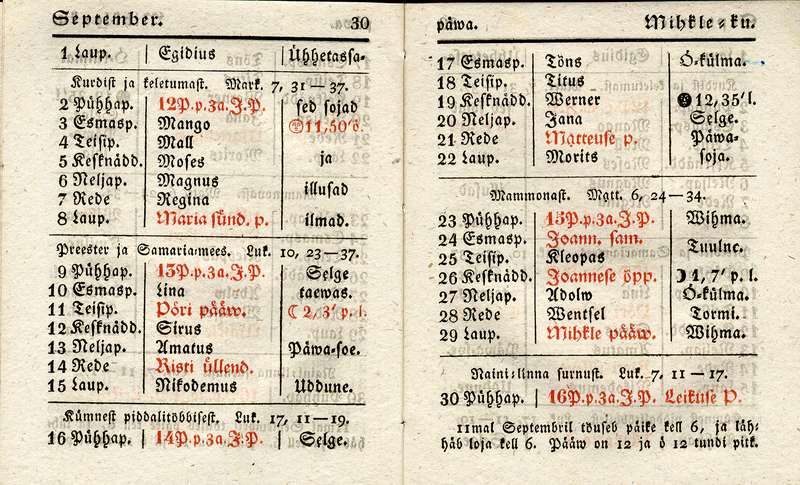 September. 30
1 Laup. Egidius Ühhetassa-
Kurdist ja keletumast. Mark. 7, 31—37.
2 Pühhap. 12P.p.3a.J.P. sed sojad
3 Esmasp. Mango 11,50'ö.
4 Teisip. Mall
5 Kesknädd. Moses ja
6 Neljap. Magnus illusad
7 Rede Regina
8 Laup. Maria sünd. p. ilmad.
Preester ja Samaria-mees. Luk. 10, 23—37.
9 Pühhap. 13P.p.3a.J.P. Selge
10 Esmasp. Lina taewas.
11 Teisip. Pöri pääw. ☾ 2, 3' p. l.
12 Kesknädd. Sirus
13 Neljap. Amatus Päwa-soe.
14 Rede Risti üllend.
15 Laup. Nikodemus Uddune.
Kümnest piddalitöbbisest. Luk. 17, 11—19.
16 Pühhap. 14P.p.3a.J.P. Selge.
päwa. Mihkle-ku.
17 Esmasp. Töns Ö-külma.
18 Teisip. Titus
19 Kesknädd. Werner 12, 35' l.
20 Neljap. Jana Selge.
21 Rede Matteuse p. Päwa-
22 Laup. Morits soja.
Mammonast. Matt. 6, 24—34.
23 Pühhap. 15P.p.3a.J.P. Wihma.
24 Esmasp. Joann. sam. Tuulne.
25 Teisip. Kleopas
26 Kesknädd. Joannese öpp. ☽ 4, 7' p. l.
27 Neljap. Adolw Ö-külma.
28 Rede Wentsel Tormi.
29 Laup. Mihkle pääw. Wihma.
Naini-linna surnust. Luk. 7, 11—17.
30 Pühhap. 16P.p.3a.J.P. Leikuse P.
11mal Septembril töuseb päike kell 6, ja läh-
häb loja kell 6. Pääw on 12 ja ö 12 tundi pitk.